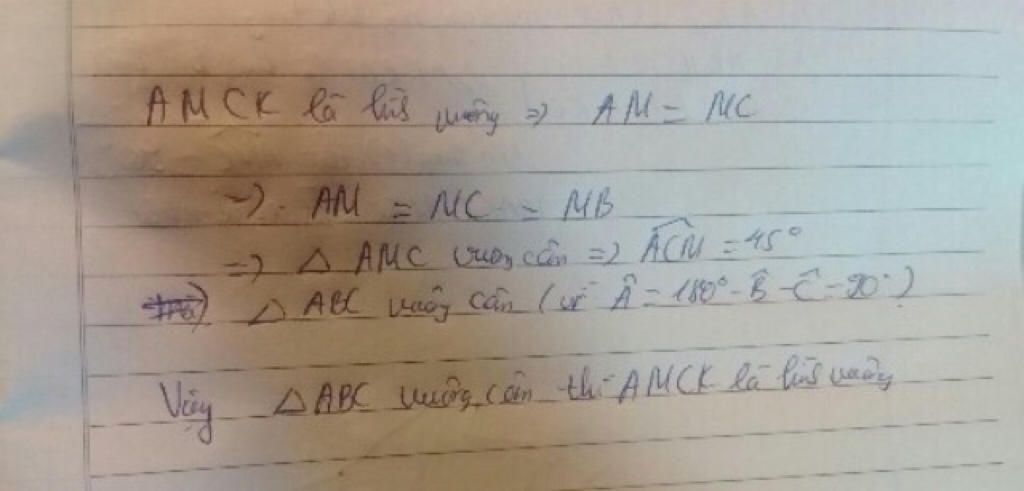 AMCK là hình vuông => AM = MC
=> AM = MC = MB
=> △ AMC vuông cân => ACM = 45°
△ ABC vuông cân (vì Â = 180° - B̂ - Ĉ = 90°)
Vậy △ABC vuông cân thì AMCK là hình vuông